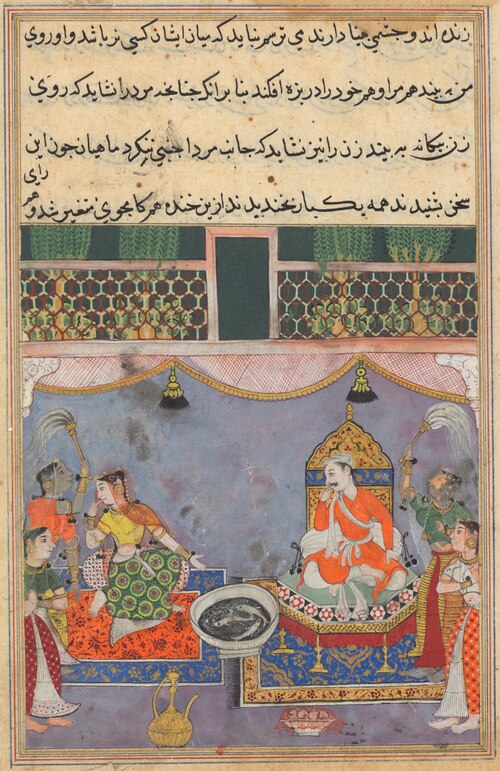 زنده اند و چشمی بینا دارند می ترسم نباید که میان ایشان کسی نر باشد و او روی
من به بیند هم مرا و هم خود را در بزه افکند بنا بر انک چنانچه مرد را نشاید که روی
زن بیکانه به بیند زن را نیز نشاید که جانب مرد اجنبی نکرد ماهیان چون این
سخن بشنیدند همه یکبار بخندیدند ازین خنده هم کامجوی متغیر شد و هم
رای